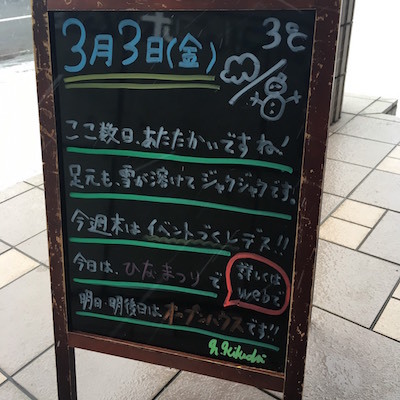 3月3日(金) 3℃
ここ数日、あたたかいですね!
足元も、雪が溶けてジャクジャクです。
今週末はイベントづくしデス!!
今日は、ひなまつりで
詳しくは
webで
明日・明後日はオープンハウスです!!